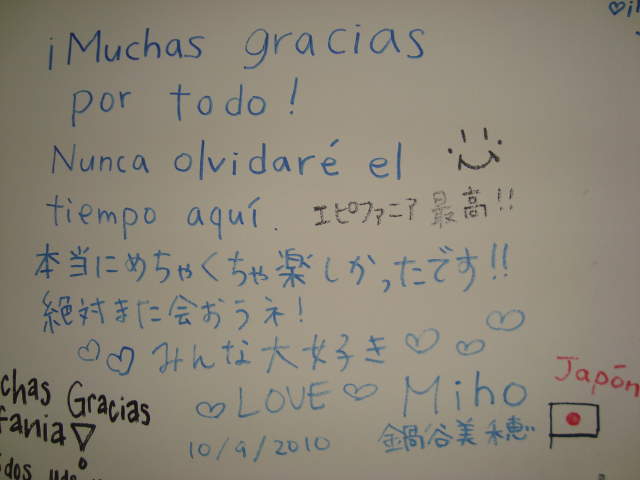 ¡Muchas gracias
por todo!
Nunca olvidaré el
tiempo aquí.
エピファニア 最高!!
本当にめちゃくちゃ楽しかったです!!
絶対また会おうネ!
♡♡ みんな大好き ♡♡♡
♡ LOVE ♡ Miho
10/9/2010 鍋谷美穂
Japón
chas Gracias
fania